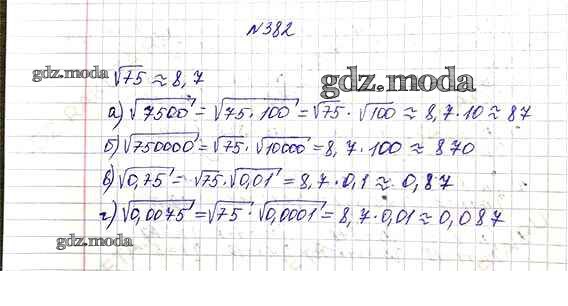 №382
gdz.moda
√75 ≈ 8,7
gdz.moda
а) √7500 = √75 · 100 = √75 · √100 ≈ 8,7 · 10 ≈ 87
б) √750000 = √75 · √10000 = 8,7 · 100 ≈ 870
в) √0,75 = √75 · √0,01 = 8,7 · 0,1 ≈ 0,87
г) √0,0075 = √75 · √0,0001 = 8,7 · 0,01 ≈ 0,087
gdz.moda